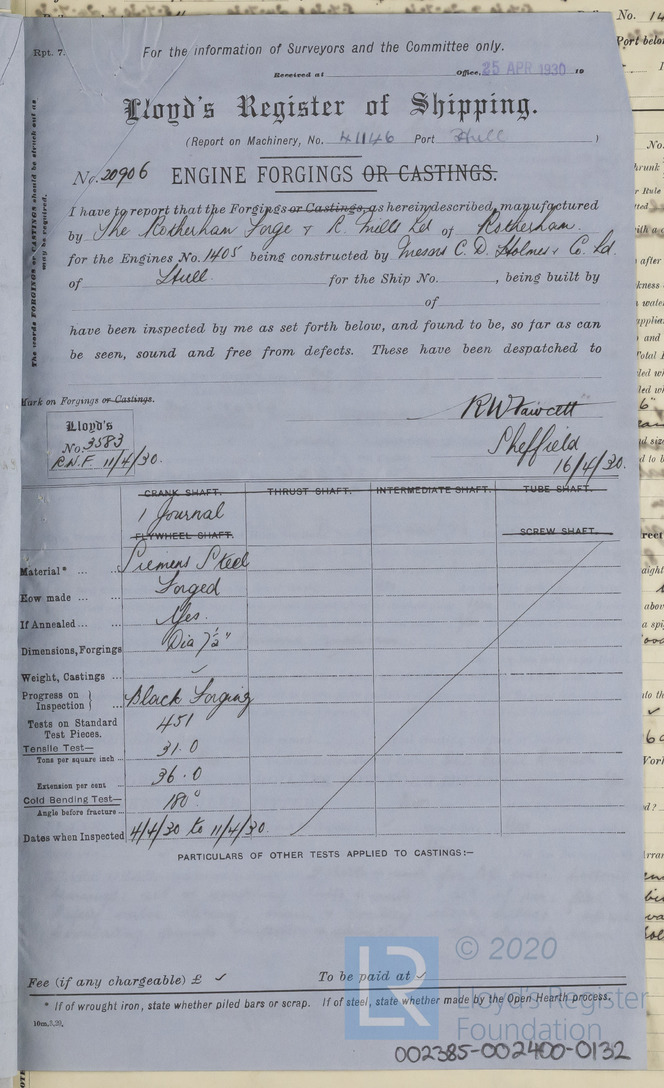 Rpt. 7.
For the information of Surveyors and the Committee only.
Received at Office, 25 APR 1930 19
Lloyd's Register of Shipping.
(Report on Machinery, No. 41146 Port Hull )
No. 20906 ENGINE FORGINGS OR CASTINGS.
The words FORGINGS or CASTINGS should be struck out as may be required.
I have to report that the Forgings or Castings, as herein described, manufactured
by The Rotherham Forge & R. Mills Ld of Rotherham.
for the Engines No. 1405 being constructed by Messrs C. D. Holmes & Co. Ld.
of Hull. for the Ship No. , being built by
of
have been inspected by me as set forth below, and found to be, so far as can
be seen, sound and free from defects. These have been despatched to
Mark on Forgings or Castings.
Lloyd's
No. 3583
R.W.F. 11/4/30.
RW Fawcett
Sheffield
16/4/30.
CRANK SHAFT. THRUST SHAFT. INTERMEDIATE SHAFT. TUBE SHAFT.
1 Journal
FLYWHEEL SHAFT. SCREW SHAFT.
Material* ... ... Siemens Steel
How made ... ... Forged
If Annealed ... ... Yes.
Dimensions, Forgings Dia 7½"
Weight, Castings ... ✓
Progress on Inspection } ... Black Forging
Tests on Standard Test Pieces. 451
Tensile Test—
Tons per square inch ... 31.0
Extension per cent ... 36.0
Cold Bending Test—
Angle before fracture ... 180°
Dates when Inspected 4/4/30 to 11/4/30.
PARTICULARS OF OTHER TESTS APPLIED TO CASTINGS:—
Fee (if any chargeable) £ ✓ To be paid at ✓
* If of wrought iron, state whether piled bars or scrap. If of steel, state whether made by the Open Hearth process.
10m,3,20.
LR
© 2020
Lloyd's Register
Foundation
002385-002400-0132